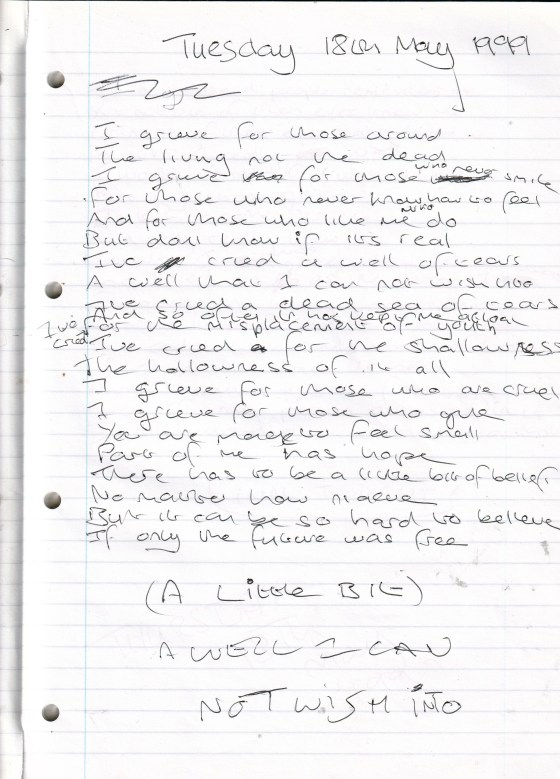 Tuesday 18th May 1999
I grieve for those around.
The living not the dead
I grieve for those who never smile
For those who never know how to feel
And for those who like me do
But don't know if it's real
I've cried a well of tears
A well that I can not wish into
I've cried a dead sea of tears
And so often it has kept me afloat
I've cried for the misplacement of youth
I've cried for the shallowness
The hollowness of it all
I grieve for those who are cruel
I grieve for those who give
You are made to feel small
Part of me has hope
There has to be a little bit of belief
No matter how naeve
But it can be so hard to believe
If only the future was free
(A Little Bit)
A WELL I CAN
NOT WISH INTO